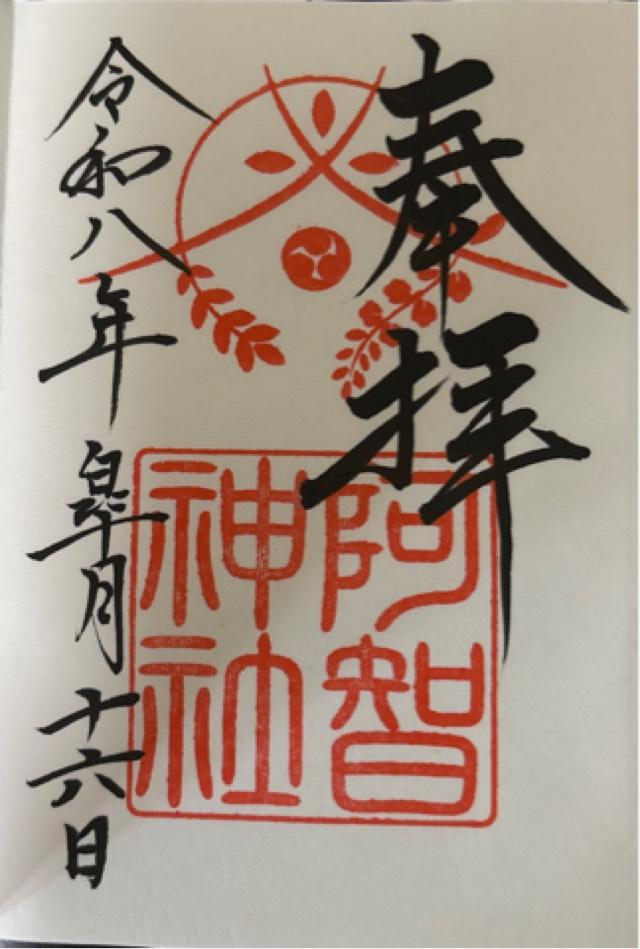 奉拝
阿智
神社
令和八年皐月十六日